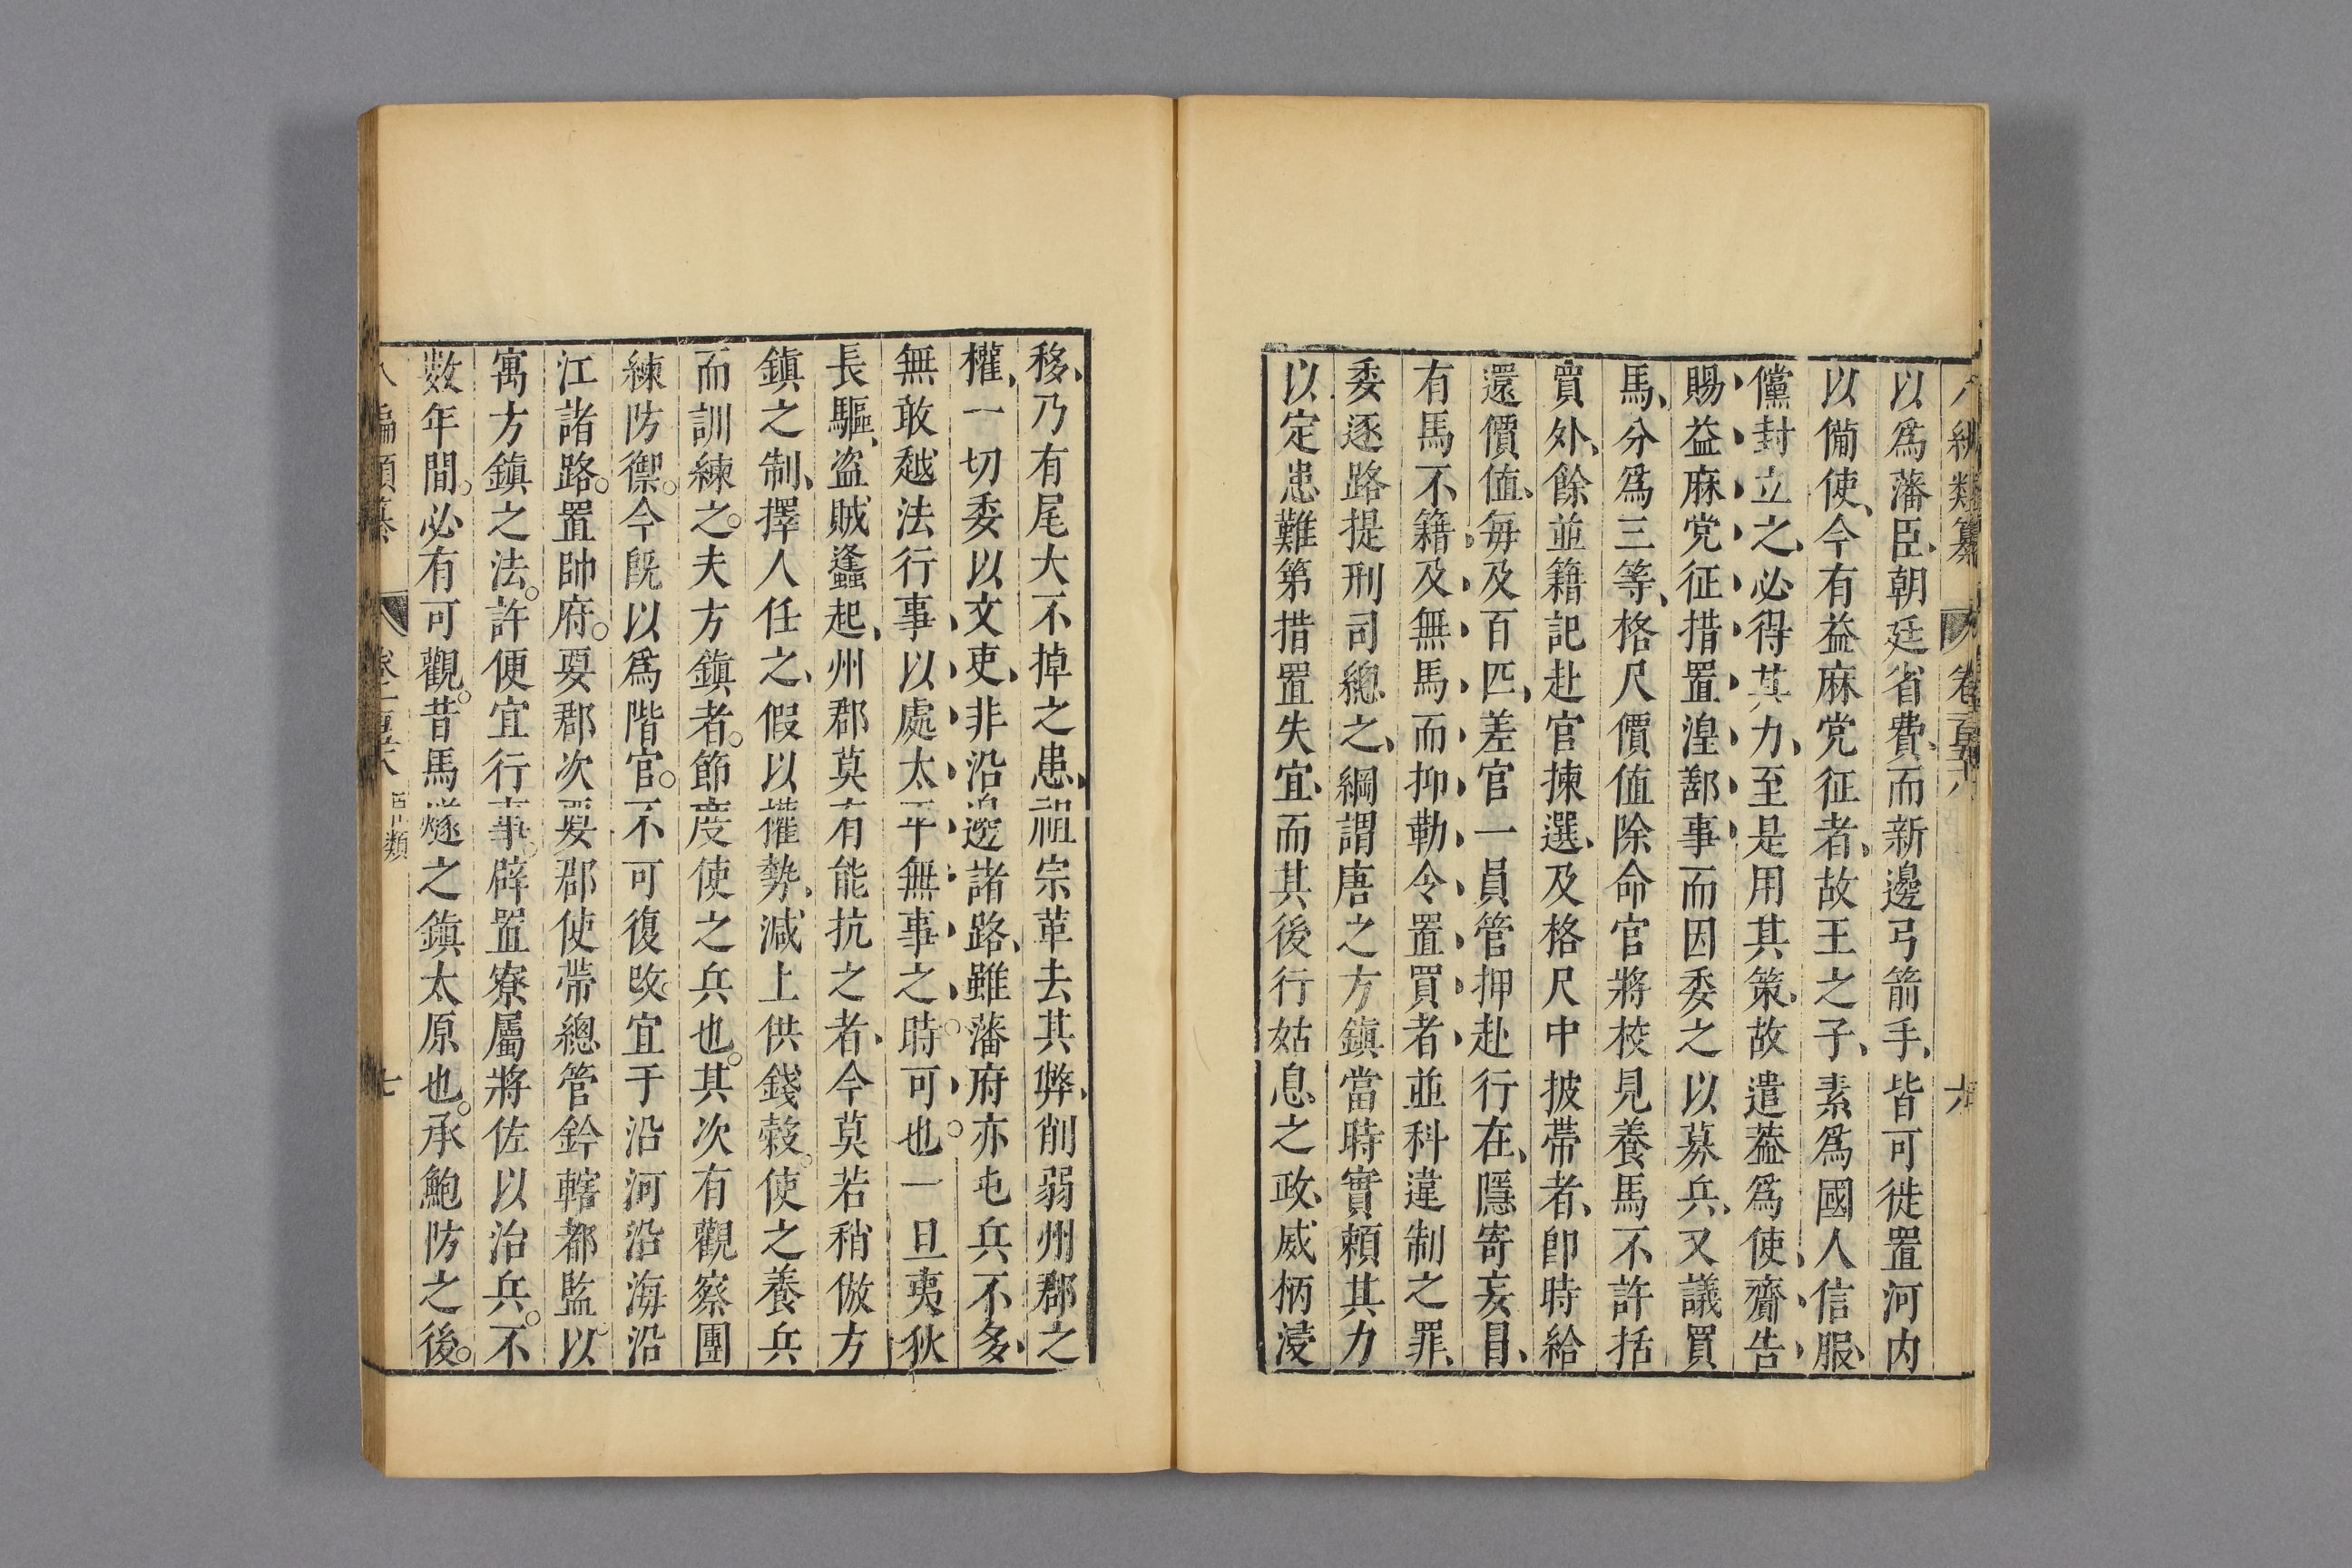 八編類纂 卷二百五十八 六
以爲藩臣朝廷省費而新邊弓箭手皆可徙置河内
以備使今有益麻党征者故王之子素爲國人信服
儻封立之必得其力至是用其策故遣葢爲使齎告
賜益麻党征措置湟鄯事而因委之以募兵又議買
馬分爲三等格尺價值除命官將校見養馬不許括
買外餘並籍記赴官揀選及格尺中披帶者卽時給
還價值每及百匹差官一員管押赴行在隱寄妄冐
有馬不籍及無馬而抑勒令置買者並科違制之罪
委逐路提刑司總之綱謂唐之方鎭當時實賴其力
以定患難第措置失宜而其後行姑息之政威柄浸
移乃有尾大不掉之患祖宗革去其弊削弱州郡之
權一切委以文吏非沿邊諸路雖藩府亦屯兵不多
無敢越法行事以處太平無事之時可也一旦夷狄
長驅盗賊蠭起州郡莫有能抗之者今莫若稍倣方
鎭之制擇人任之假以權勢減上供錢穀使之養兵
而訓練之夫方鎭者節度使之兵也其次有觀察團
練防禦今旣以爲階官不可復改宜于沿河沿海沿
江諸路置帥府要郡次要郡使帶總管鈐轄都監以
寓方鎭之法許便宜行事辟置寮屬將佐以治兵不
數年間必有可觀昔馬燧之鎭太原也承鮑防之後
八編類纂 卷二百五十八 類 七